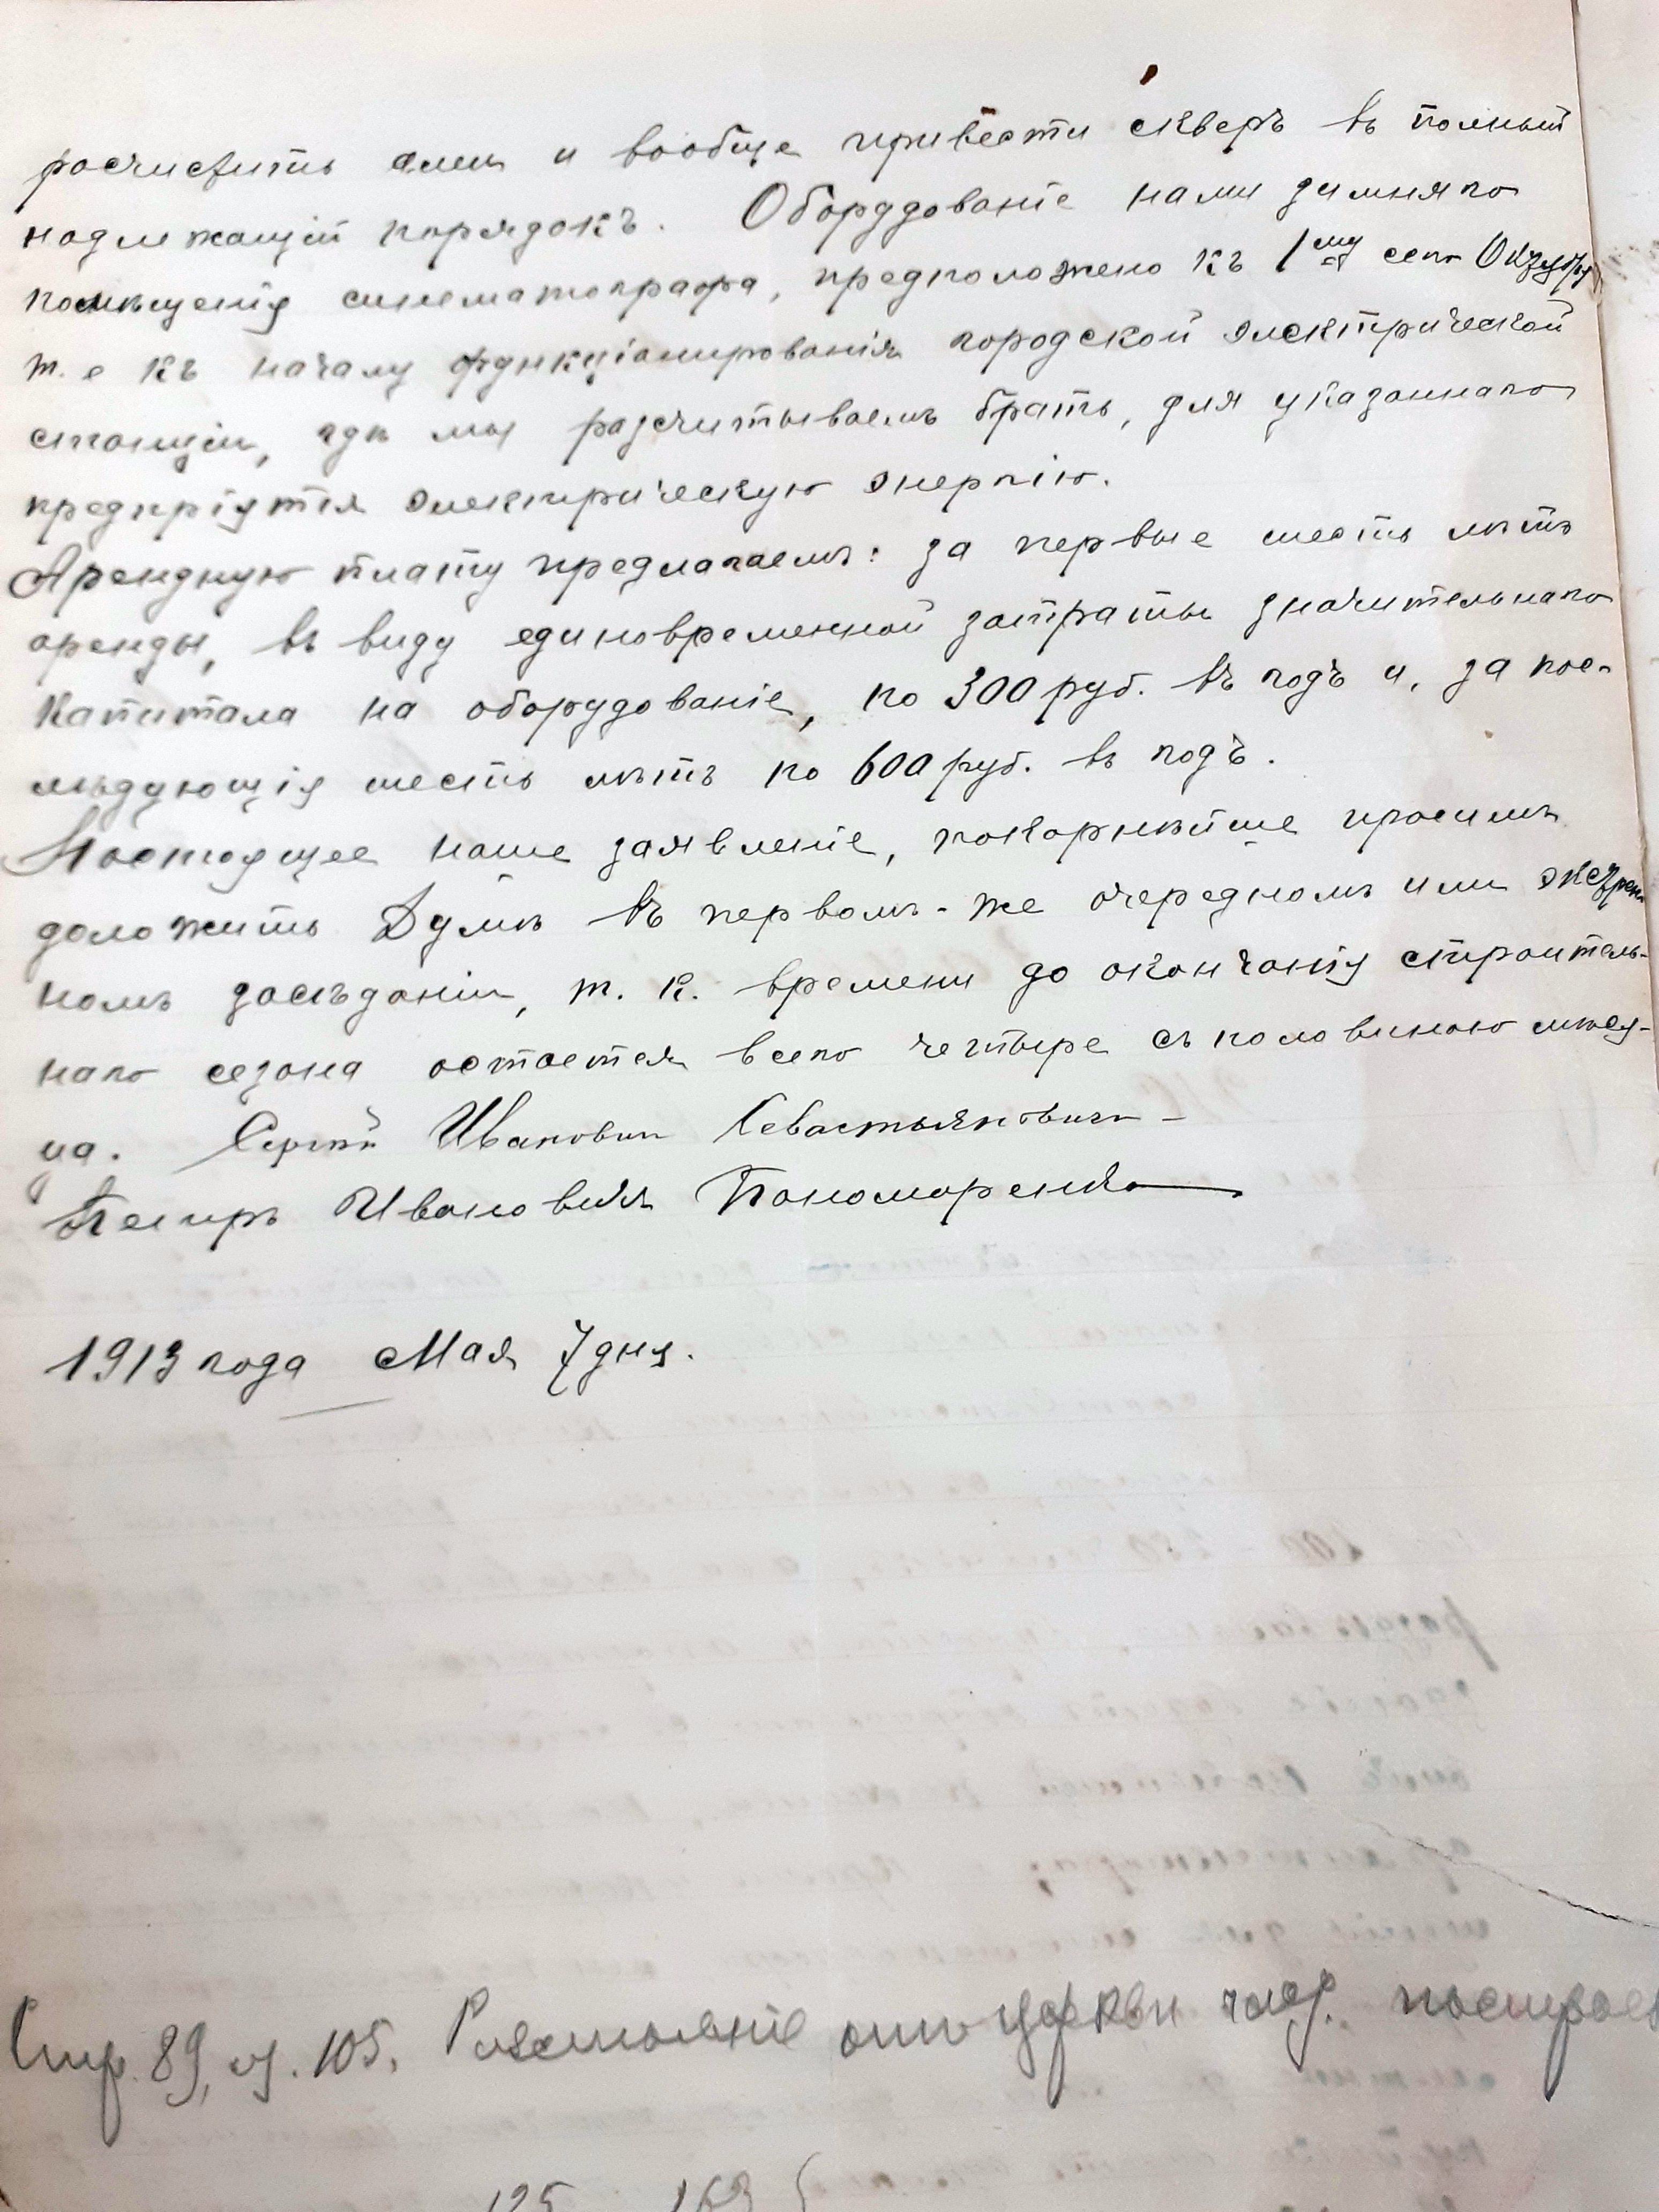 росчистить алеи и вообще привести скверъ въ полный
надлежащій порядокъ. Оборудованіе нами зимняго
помѣщенія синематографа, предположено къ 1му сего Октября
т. е къ началу функціонированія городской электрической
станціи, гдѣ мы разсчитываемъ брать, для указаннаго
предпріятія электрическую энергію.
Арендную плату предлагаемъ: за первые шесть лѣтъ
аренды, въ виду единовременной затраты значительнаго
капитала на оборудованіе, по 300 руб. въ годъ и, за пос-
лѣдующія шесть лѣтъ по 600 руб. въ годъ.
Настоящее наше заявленіе, покорнѣйше просимъ
доложить Думѣ въ первомъ-же очередномъ или экстрен
номъ засѣданіи, т. к. времени до окончанія строитель-
наго сезона остается всего четыре съ половиною мѣся-
ца. Сергѣй Ивановичъ Севастьяновичъ
Петръ Ивановичъ Пономаренко
1913 года Мая 7 дня.
Стр. 89, ст. 105. Разстояніе отъ церкви построе
125 163